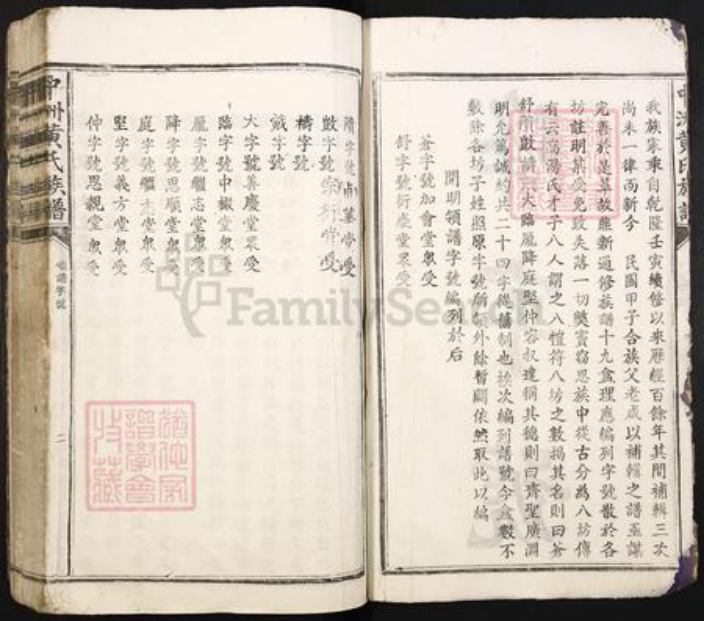 我族家乘自乾隆壬寅續修以來歷經百餘年其間補輯三次
尚未一律而新今 民國甲子合族父老咸以補輯之譜亟謀
完善於是革故鼎新通修族譜十九盒理應編列字號散於各
坊註明某受免致失落一切弊竇竊思族中從古分為八坊傳
有云高陽氏才子八人謂之八愷符八坊之數揭其名則曰蒼
舒隤敳檮戭大臨尨降庭堅仲容叔達稱其德則曰齊聖廣淵
明允篤誠約共二十四字從舊制也挨次編列譜號今盒數不
敷除各坊子姓照原字號所領外餘暫闕依然取此以編
開明領譜字號編列於后
蒼字號加會堂眾受
舒字號衍慶堂眾受
隤字號
敳字號
檮字號
戭字號
大字號善慶堂眾受
臨字號中椒堂眾受
尨字號繼志堂眾受
降字號思順堂眾受
庭字號繼志堂眾受
堅字號義方堂眾受
仲字號思親堂眾受
中洲黃氏族譜
領譜字號
二
FamilySearch